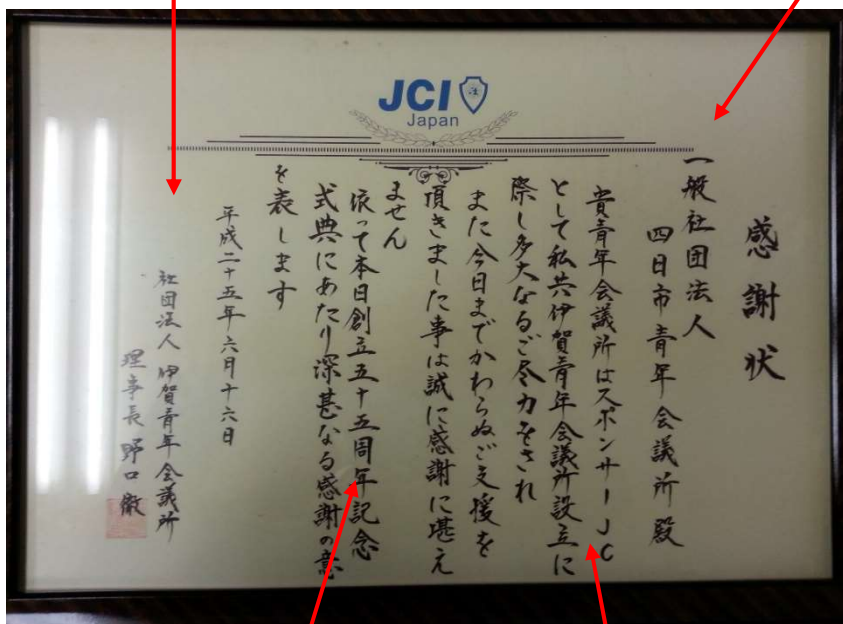 JCI
Japan
感謝状
一般社団法人
四日市青年会議所殿
貴青年会議所はスポンサーJC
として私共伊賀青年会議所設立に
際し多大なるご尽力をされ
また今日までかわらぬご支援を
頂きました事は誠に感謝に堪え
ません
依って本日創立五十五周年記念
式典にあたり深甚なる感謝の意
を表します
平成二十五年六月十六日
社団法人 伊賀青年会議所
理事長 野口徹